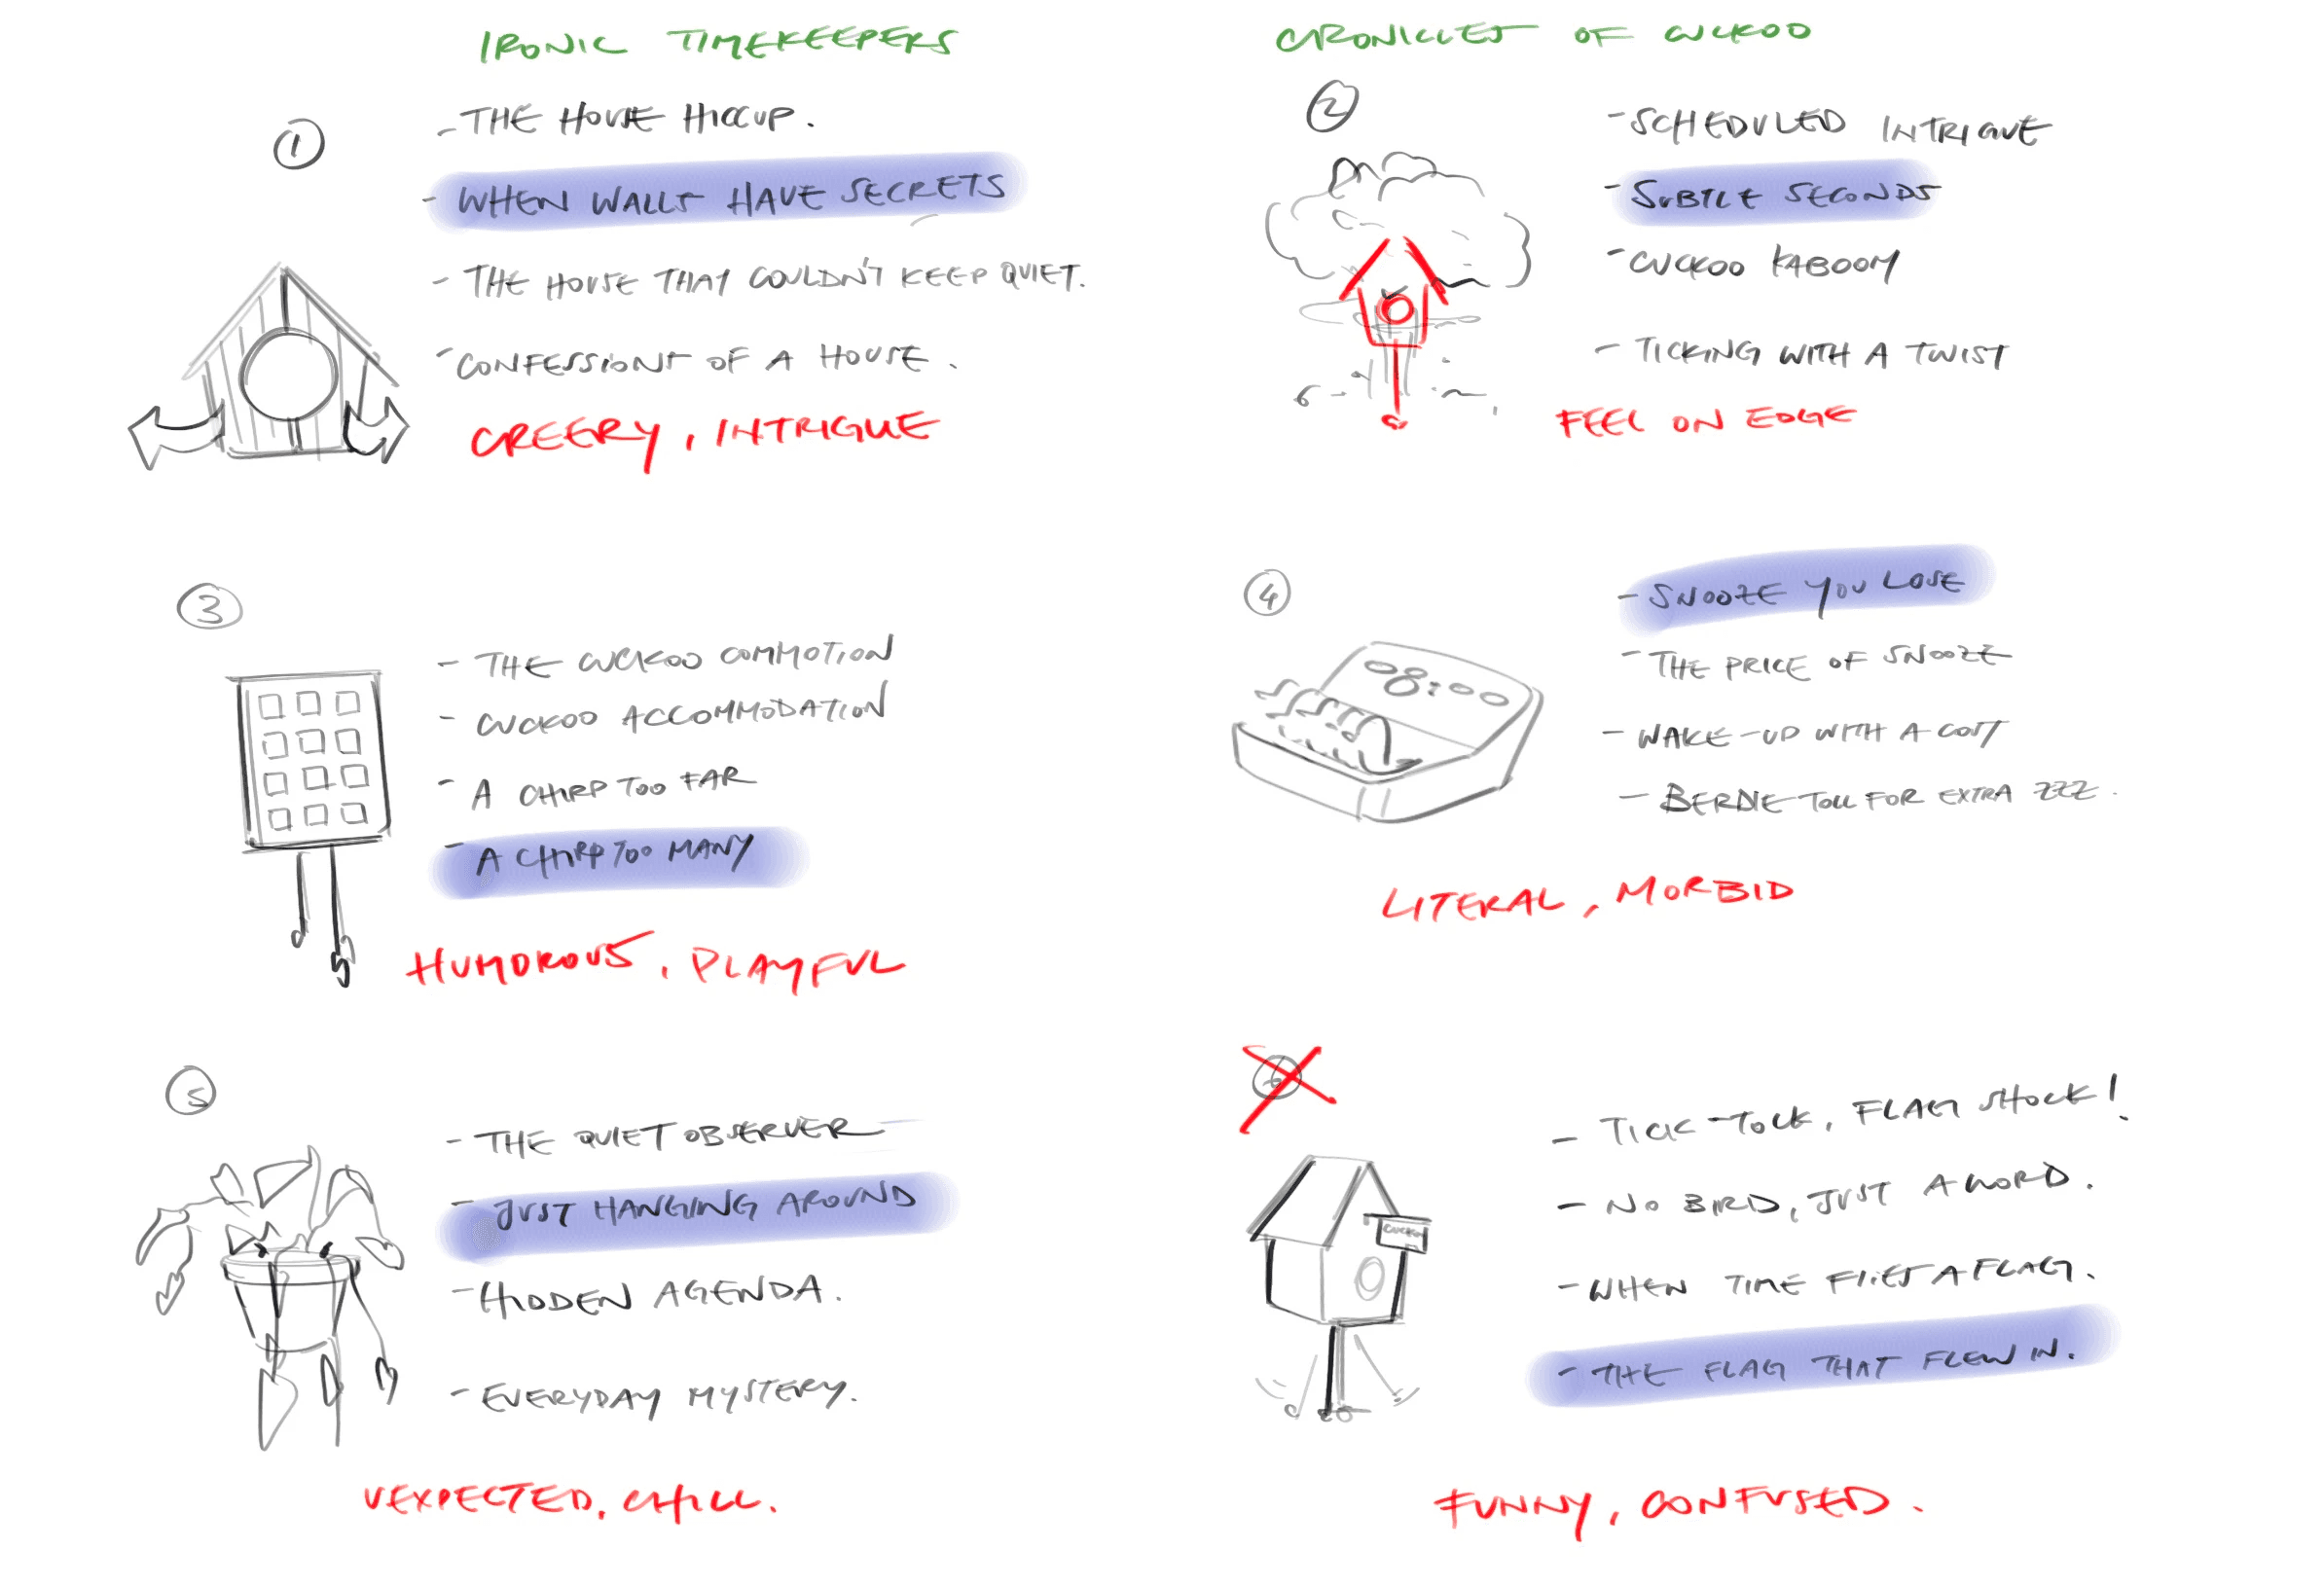 IRONIC TIMEKEEPERS
CRONICLES OF CUCKOO
1
- THE HOUSE HICCUP.
- WHEN WALLS HAVE SECRETS
- THE HOUSE THAT COULDN'T KEEP QUIET.
- CONFESSIONS OF A HOUSE.
CREEPY, INTRIGUE
2
- SCHEDULED INTRIGUE
- SUBTLE SECONDS
- CUCKOO KABOOM
- TICKING WITH A TWIST
FEEL ON EDGE
3
- THE CUCKOO COMMOTION
- CUCKOO ACCOMMODATION
- A CHIRP TOO FAR
- A CHIRP TOO MANY
HUMOROUS, PLAYFUL
4
08:00
- SNOOZE YOU LOSE
- THE PRICE OF SNOOZE
- WAKE-UP WITH A COST
- BERDIE TOLL FOR EXTRA ZZZ.
LITERAL, MORBID
5
- THE QUIET OBSERVER
- JUST HANGING AROUND
- HIDDEN AGENDA.
- EVERYDAY MYSTERY.
UEXPECTED, CHILL.
CUCKOO
- TICK-TOCK, FLAG SHOCK!
- NO BIRD, JUST A WORD.
- WHEN TIME FLIES A FLAG.
- THE FLAG THAT FLEW IN.
FUNNY, CONFUSED.